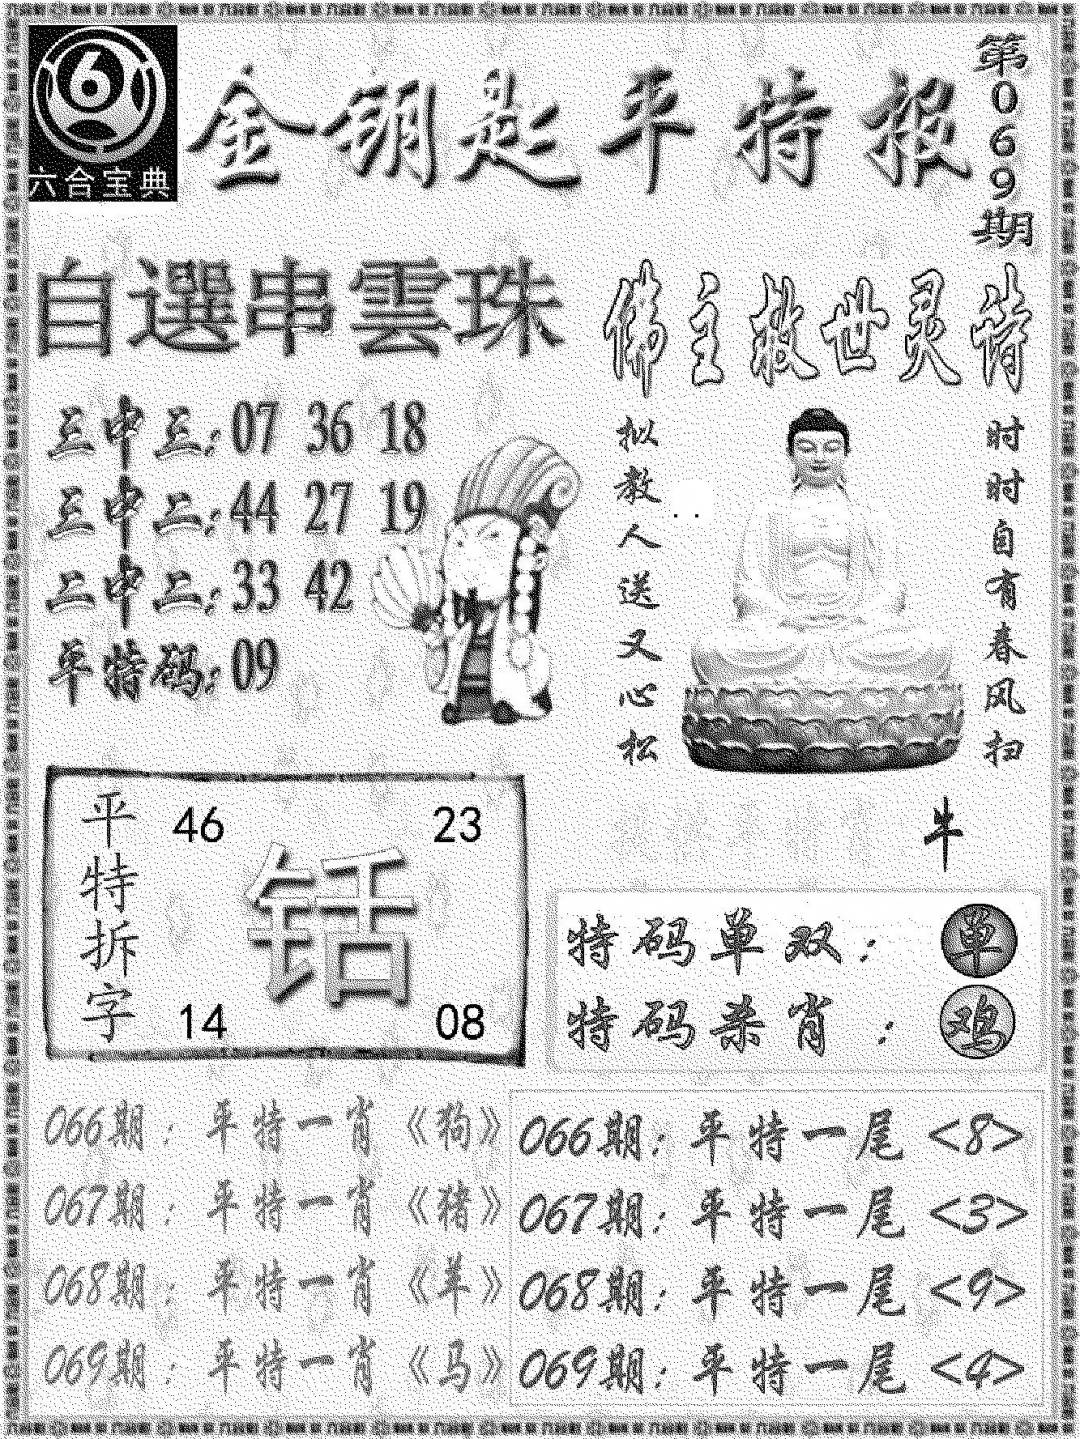 六合宝典
金钥匙平特报
第069期
自選串雲珠
三中三:07 36 18
三中二:44 27 19
二中二:33 42
平特码:09
佛主救世灵诗
时时自有春风扫
拟教人送又心松
牛
平特拆字
46 23
铦
14 08
特码单双:单
特码杀肖:鸡
066期:平特一肖《狗》
067期:平特一肖《猪》
068期:平特一肖《羊》
069期:平特一肖《马》
066期:平特一尾<8>
067期:平特一尾<3>
068期:平特一尾<9>
069期:平特一尾<4>